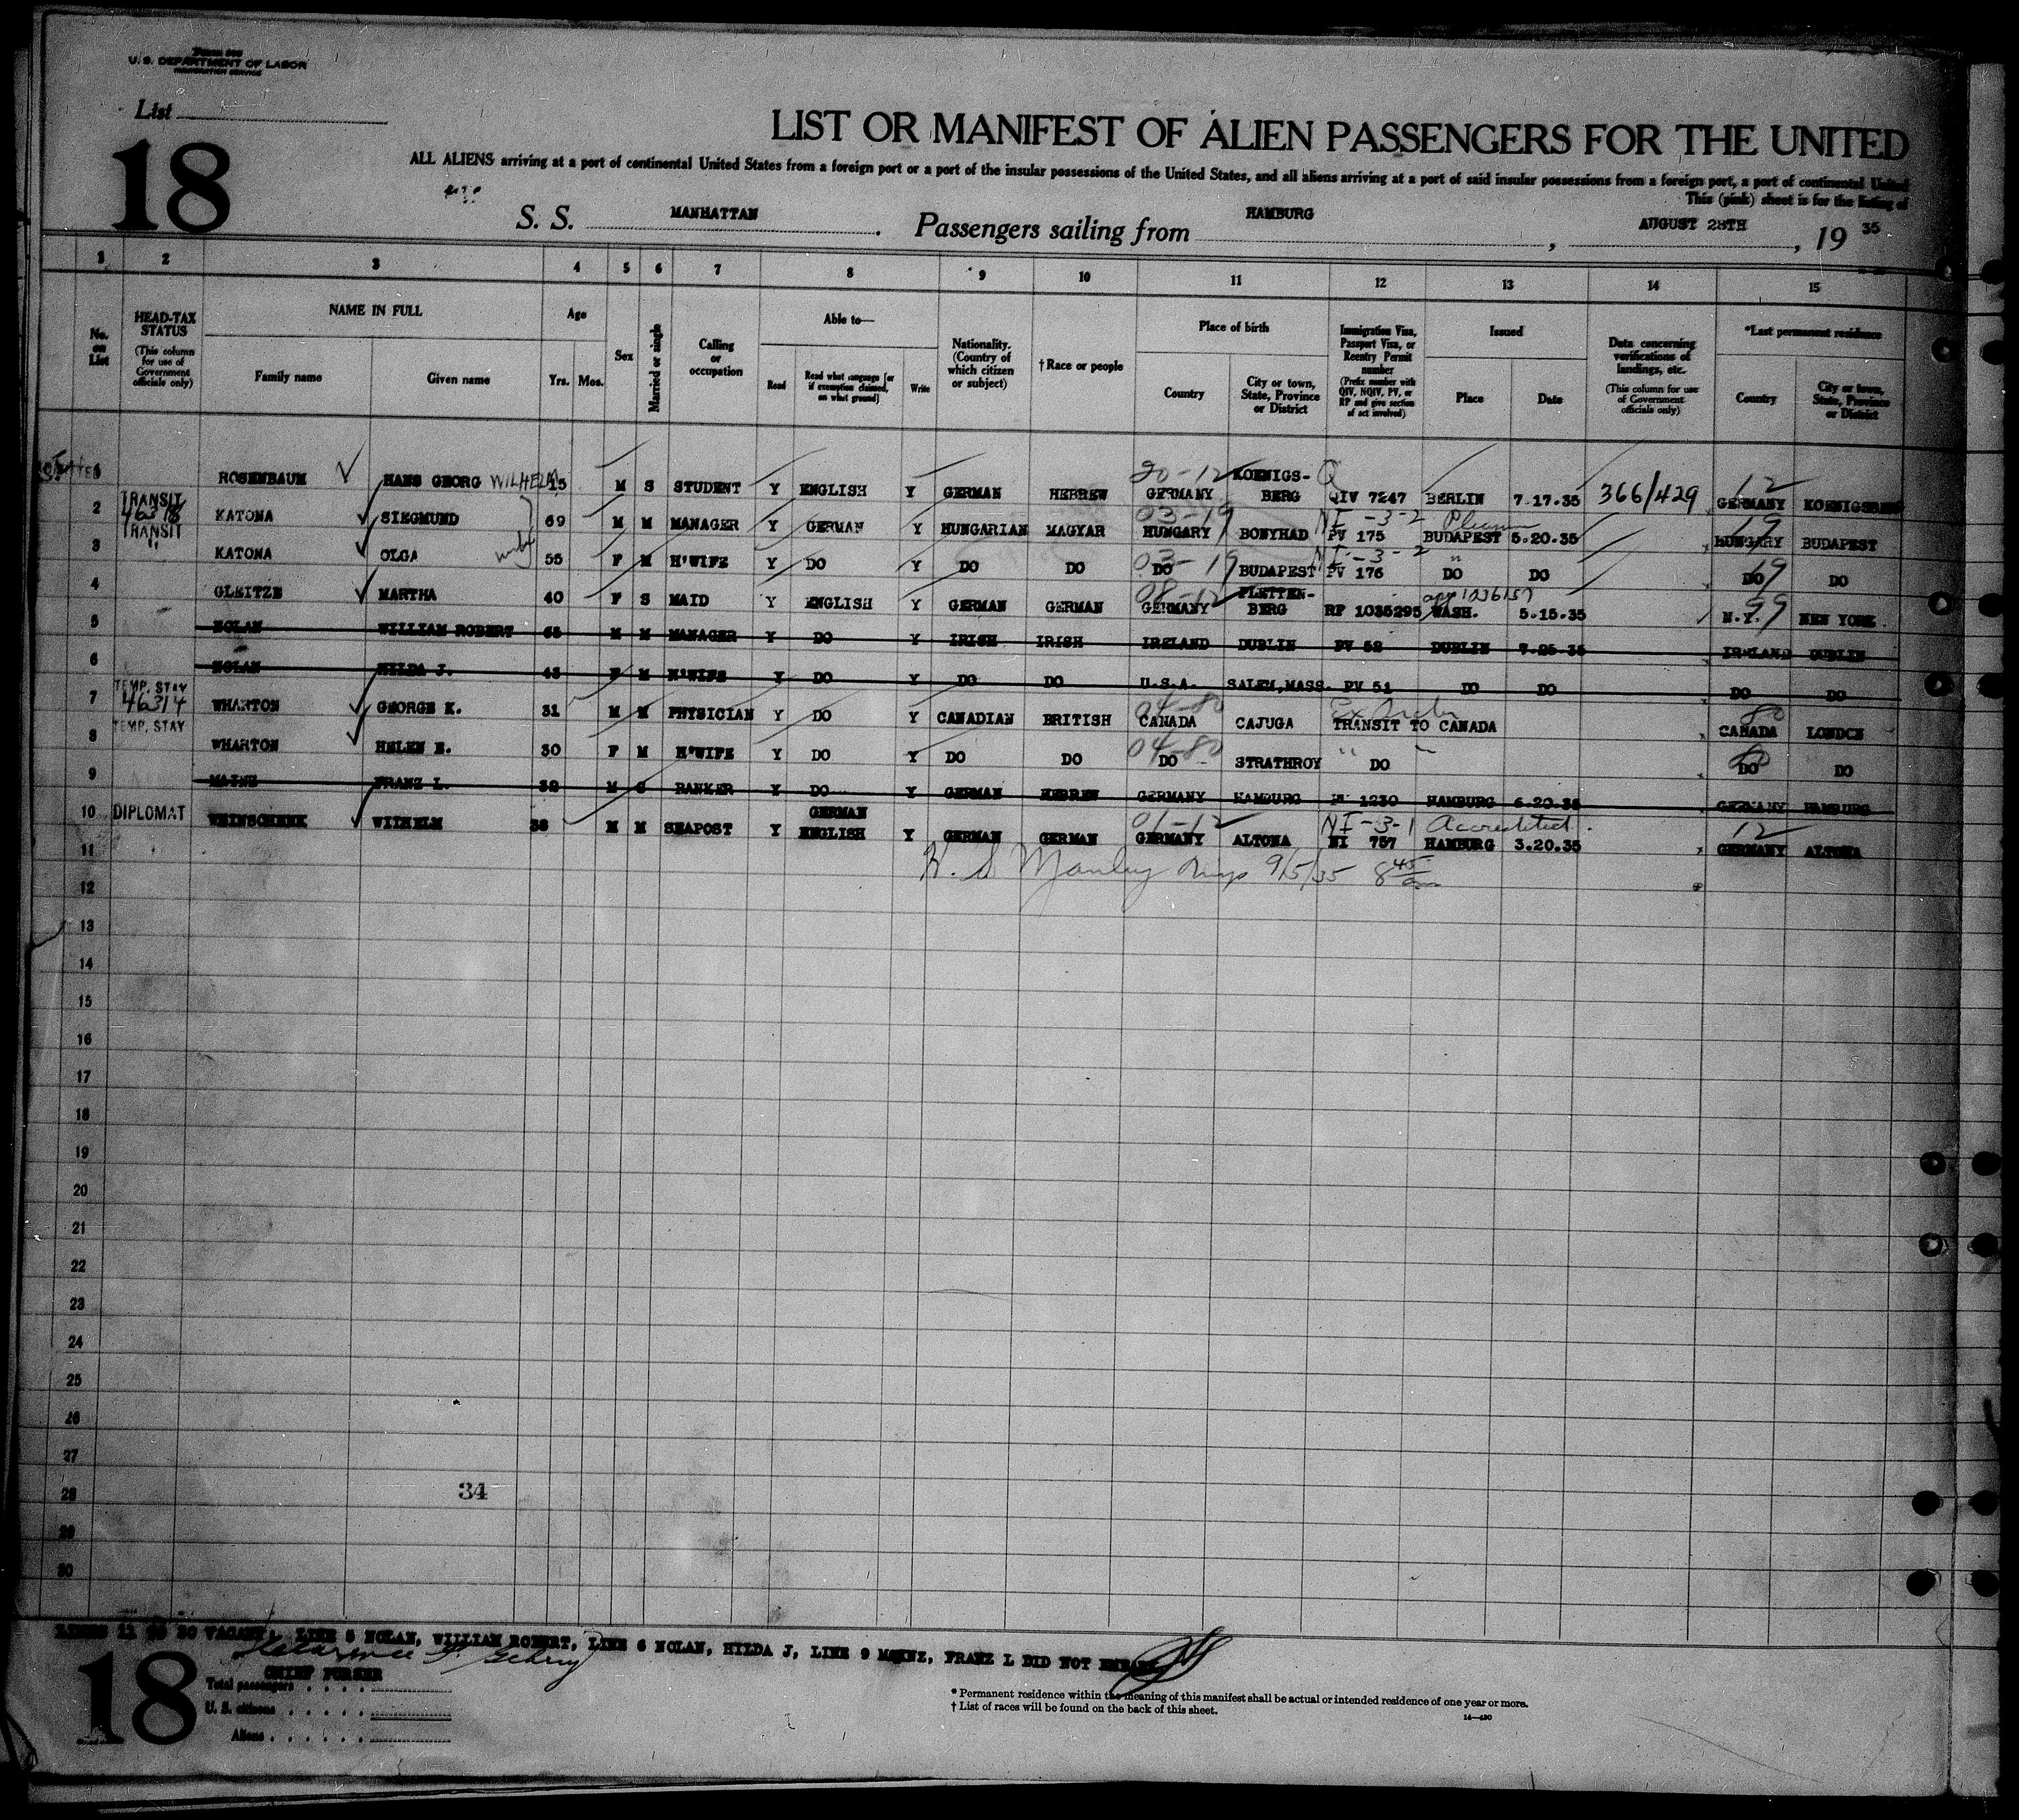 Form 500
U. S. DEPARTMENT OF LABOR
IMMIGRATION SERVICE
List
18
LIST OR MANIFEST OF ALIEN PASSENGERS FOR THE UNITED
ALL ALIENS arriving at a port of continental United States from a foreign port or a port of the insular possessions of the United States, and all aliens arriving at a port of said insular possessions from a foreign port, a port of continental United
This (pink) sheet is for the listing of
S. S. MANHATTAN . Passengers sailing from HAMBURG , AUGUST 28TH , 19 35
1 2 3 4 5 6 7 8 9 10 11 12 13 14 15
No. on List
HEAD-TAX STATUS (This column for use of Government officials only)
NAME IN FULL
Family name
Given name
Age
Yrs. Mos.
Sex
Married or single
Calling or occupation
Able to—
Read
Read what language [or if exemption claimed, on what ground]
Write
Nationality. (Country of which citizen or subject)
† Race or people
Place of birth
Country
City or town, State, Province or District
Immigration Visa, Passport Visa, or Reentry Permit number (Prefix number with QIV, NQIV, PV, or RP and give section of act involved)
Issued
Place
Date
Data concerning verifications of landings, etc. (This column for use of Government officials only)
*Last permanent residence
Country
City or town, State, Province or District
20-12 KOENIGS- Q
1 ROSENBAUM HANS GEORG WILHELM 15 M S STUDENT Y ENGLISH Y GERMAN HEBREW GERMANY BERG QIV 7247 BERLIN 7.17.35 366/429 12 GERMANY
TRANSIT 03-19 NI-3-2
2 46318 KATONA SIEGMUND 69 M M MANAGER Y GERMAN Y HUNGARIAN MAGYAR HUNGARY BONYHAD PV 175 BUDAPEST 5.20.35 19 HUNGARY BUDAPEST
TRANSIT 03-19 NI-3-2 "
3 " KATONA OLGA wife 55 F M H'WIFE Y DO Y DO DO DO BUDAPEST PV 176 DO DO 19 DO DO
08-12 PLETTEN- app 1036157
4 GLEITZE MARTHA 40 F S MAID Y ENGLISH Y GERMAN GERMAN GERMANY BERG RP 1035295 WASH. 5.15.35 99 N.Y. NEW YORK
5 NOLAN WILLIAM ROBERT 65 M M MANAGER Y DO Y IRISH IRISH IRELAND DUBLIN PV 52 DUBLIN 7.25.35 IRELAND DUBLIN
6 NOLAN HILDA J. 43 F M H'WIFE Y DO Y DO DO U.S.A. SALEM,MASS. PV 51 DO DO DO DO
TEMP. STAY 04-80
7 46314 WHARTON GEORGE K. 31 M M PHYSICIAN Y DO Y CANADIAN BRITISH CANADA CAJUGA TRANSIT TO CANADA 80 CANADA LONDON
TEMP. STAY 04-80 "
8 WHARTON HELEN E. 30 F M H'WIFE Y DO Y DO DO DO STRATHROY DO 80 DO DO
9 MAINZ FRANZ L. 32 M S BANKER Y DO Y GERMAN HEBREW GERMANY HAMBURG PV 1230 HAMBURG 6.20.35 GERMANY HAMBURG
GERMAN 01-12 NI-3-1 Accredited.
10 DIPLOMAT WEINSCHENK WILHELM 38 M M SEAPOST Y ENGLISH Y GERMAN GERMAN GERMANY ALTONA NI 757 HAMBURG 3.20.35 12 GERMANY ALTONA
11 H. S Manley Insp 9/5/35 8 45 am
12
13
14
15
16
17
18
19
20
21
22
23
24
25
26
27
34
28
29
30
LINES 11 TO 30 VACANT, LINE 5 NOLAN, WILLIAM ROBERT, LINE 6 NOLAN, HILDA J, LINE 9 MAINZ, FRANZ L DID NOT EMBARK
CHIEF PURSER
18
Total passengers
U. S. citizens
Aliens
* Permanent residence within the meaning of this manifest shall be actual or intended residence of one year or more.
† List of races will be found on the back of this sheet.
14—430